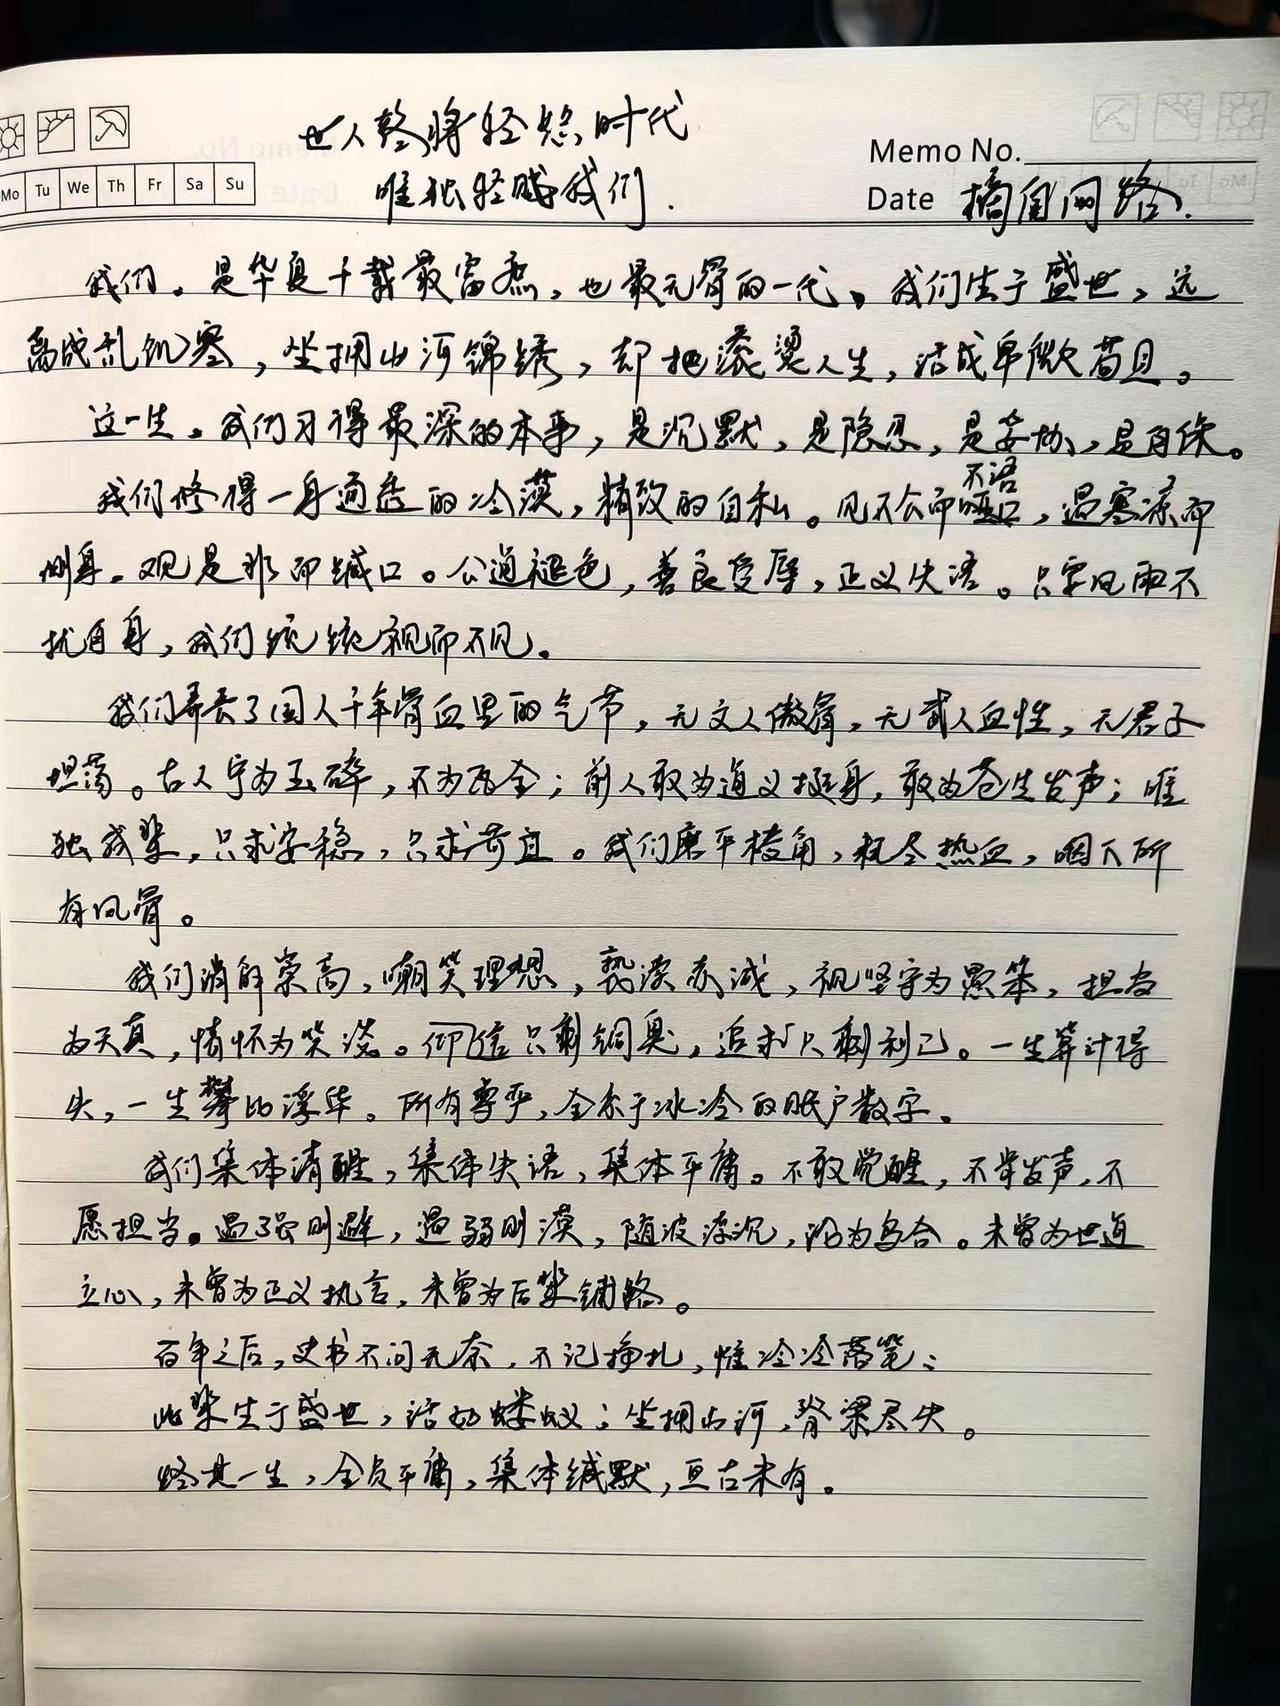 世人终将轻恕时代
唯独轻贱我们.
Memo No.
Mo Tu We Th Fr Sa Su
Date 摘自网络.
我们。是华夏千载最富庶，也最无骨的一代。我们生于盛世，远
离战乱饥寒，坐拥山河锦绣，却把滚烫人生，活成卑微苟且。
这一生。我们习得最深的本事，是沉默，是隐忍，是妥协，是自保。
不语
我们修得一身通透的冷漠，精致的自私。见不公而哑口，遇寒凉而
侧身。观是非而缄口。公道褪色，善良受辱，正义失语。只字风雨不
扰自身，我们统统视而不见。
我们弄丢了国人千年骨血里的气节，无文人傲骨，无武人血性，无君子
坦荡。古人宁为玉碎，不为瓦全；前人敢为道义挺身，敢为苍生发声；唯
独我辈，只求安稳，只求苟且。我们磨平棱角，耗尽热血，咽下所
有风骨。
我们消解崇高，嘲笑理想，亵渎赤诚，视坚守为愚笨，担当
为天真，情怀为笑谈。仰信只剩铜臭，追求只剩利己。一生算计得
失，一生攀比浮华。所有尊严，全系于冰冷的账户数字。
我们集体清醒，集体失语，集体平庸。不敢觉醒，不肯发声，不
愿担当。遇强则避，遇弱则漠，随波浮沉，沦为乌合。未曾为世道
立心，未曾为正义执言，未曾为后辈铺路。
百年之后，史书不问无奈，不记挣扎，惟冷冷落笔：
此辈生于盛世，活如蝼蚁；坐拥山河，脊梁尽失。
终其一生，全员平庸，集体缄默，亘古未有。